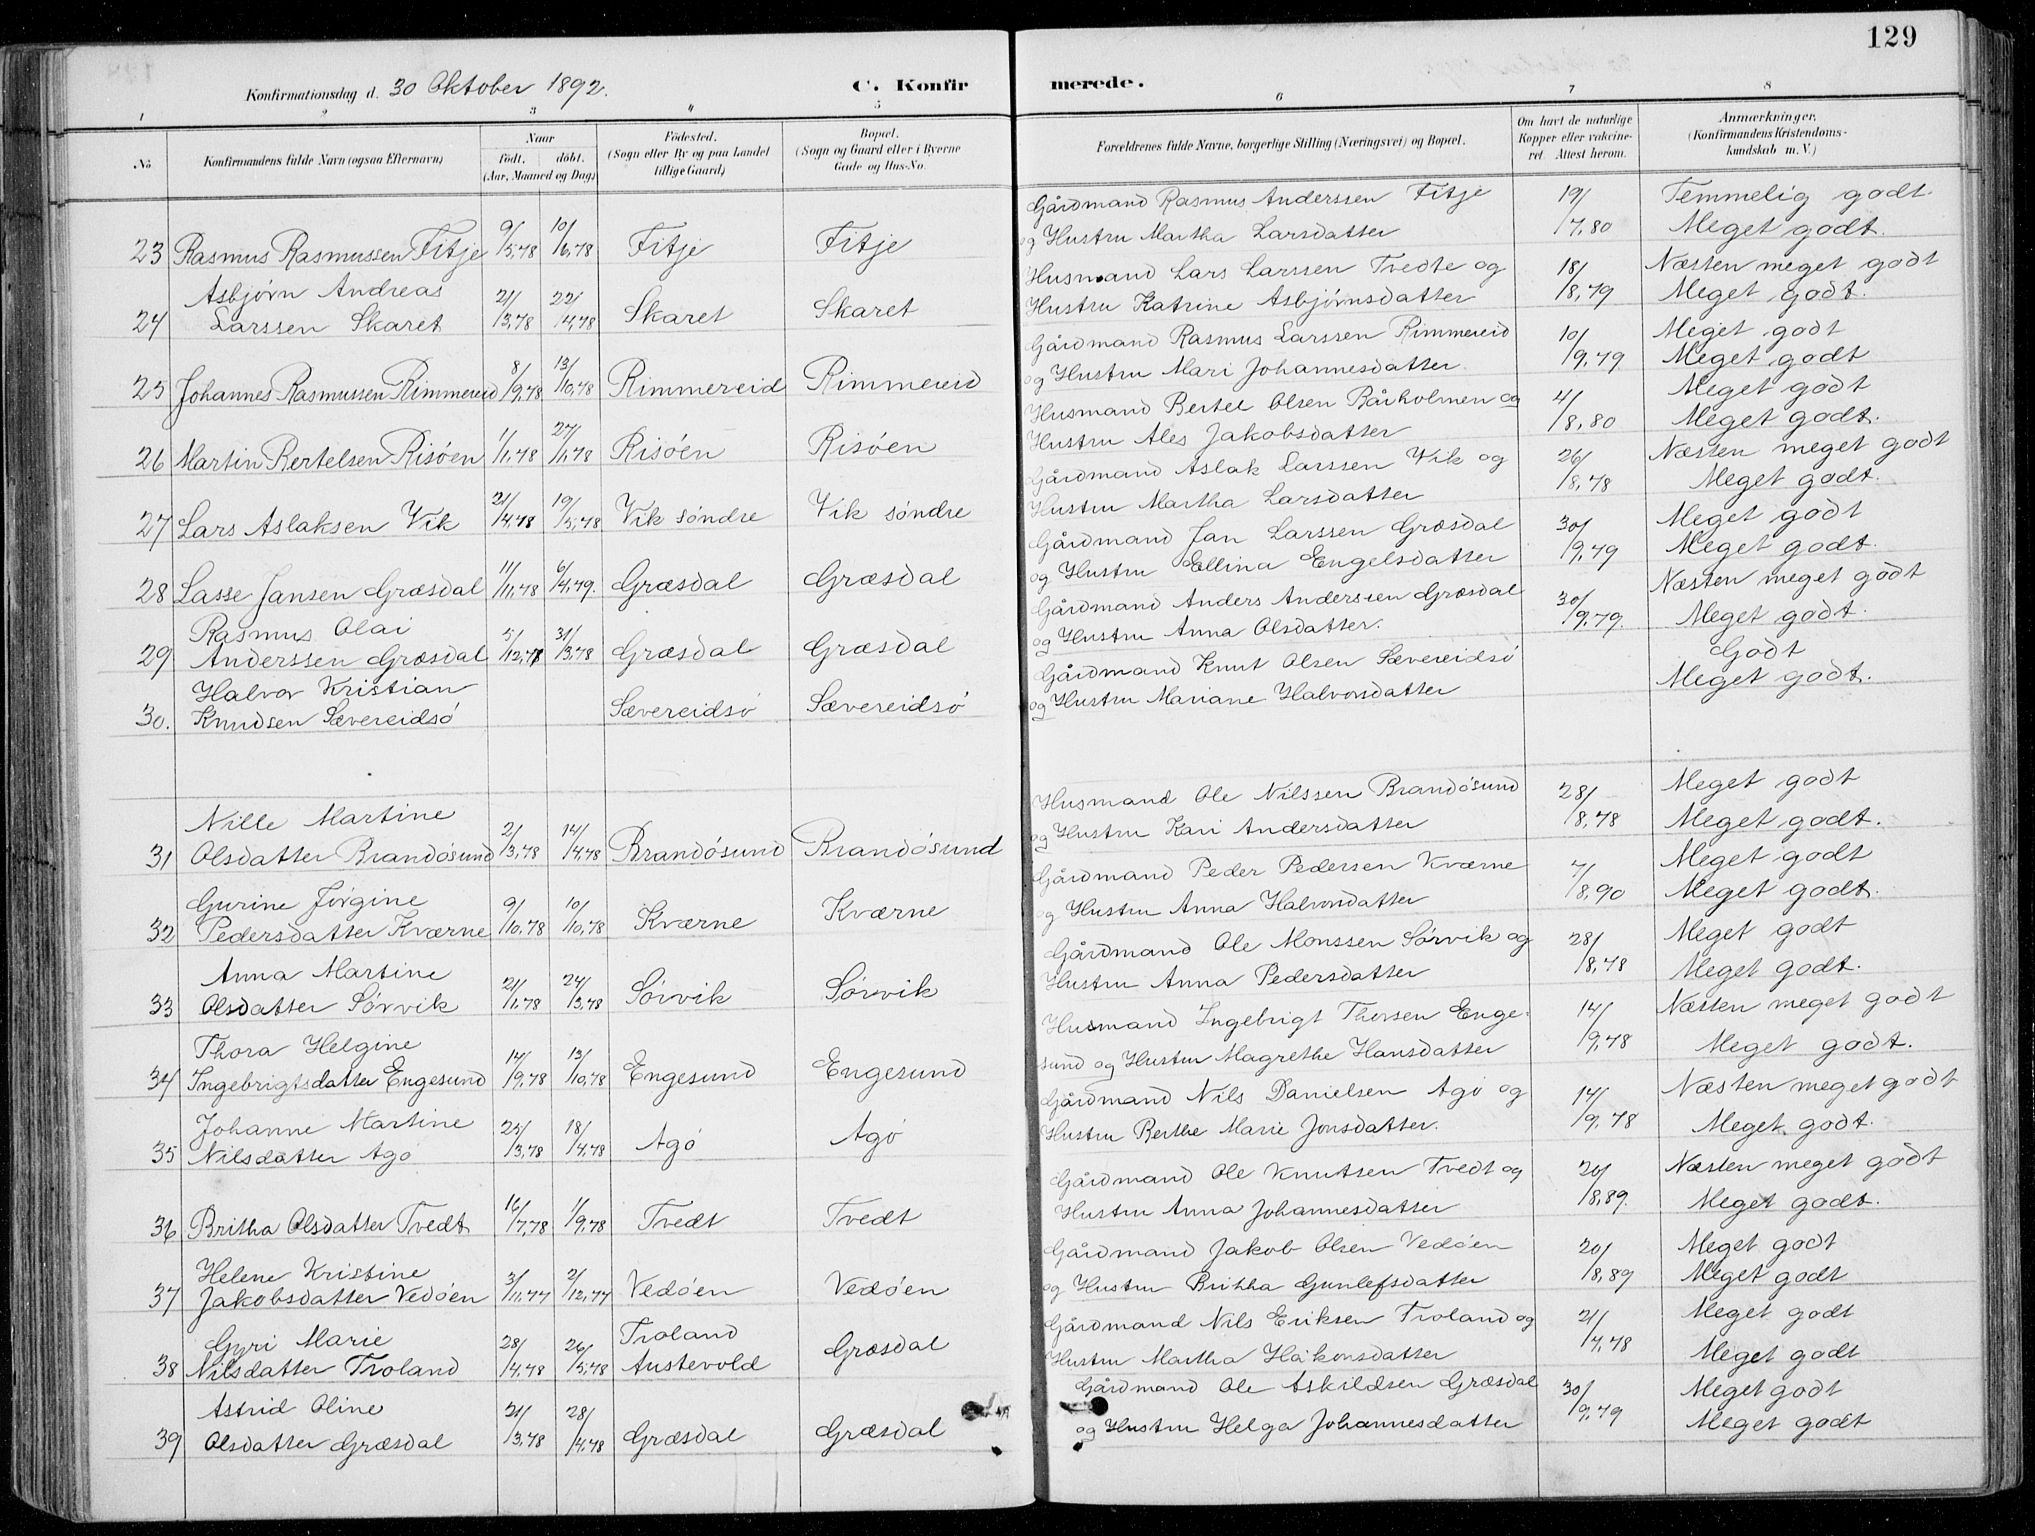 129
Konfirmationsdag d. 30 Oktober 1892.
C. Konfirmerede.
1 2 3 4 5 6 7 8
No
Konfirmandens fulde Navn (ogsaa Efternavn)
Naar
født. døbt.
(Aar, Maaned og Dag)
Fødested.
(Sogn eller By og paa Landet
tillige Gaard)
Bopæl.
(Sogn og Gaard eller i Byerne
Gade og Hus-No.
Forældrenes fulde Navne, borgerlige Stilling (Næringsvei) og Bopæl.
Om havt de naturlige
Kopper eller vaccine-
ret. Attest herom.
Anmærkninger,
(Konfirmandens Kristendoms-
kundskab m. V.)
23 Rasmus Rasmussen Fitje 9/5,78 10/6,78 Fitje Fitje
Gårdmand Rasmus Anderssen Fitje 19/7,80 Temmelig godt.
og Hustru Martha Larsdatter Meget godt.
24 Asbjørn Andreas
Larssen Skaret 21/3,78 22/4,78 Skaret Skaret
Husmand Lars Larssen Tvedte og 18/8,79 Næsten meget godt
Hustru Katrine Asbjørnsdatter Meget godt.
25 Johannes Rasmussen Rimmereid 8/9,78 13/10,78 Rimmereid Rimmereid
Gårdmand Rasmus Larssen Rimmereid 10/9,79 Meget godt
og Hustru Mari Johannesdatter. Meget godt
26 Martin Bertelsen Risøen 1/1,78 27/1,78 Risøen Risøen
Husmand Bertel Olsen Rårholmen og 4/8,80 Meget godt
Hustru Ales Jakobsdatter Meget godt.
27 Lars Aslaksen Vik 21/4,78 19/5,78 Vik søndre Vik søndre
Gårdmand Aslak Larssen Vik og 26/8,78 Næsten meget godt
Hustru Martha Larsdatter Meget godt.
28 Lasse Jansen Græsdal 11/11,78 6/4,79. Græsdal Græsdal
Gårdmand Jan Larssen Græsdal 30/9,79 Meget godt
og Hustru Ellina Engelsdatter Meget godt.
29 Rasmus Olai
Anderssen Græsdal 5/12,78 31/3,78 Græsdal Græsdal
Gårdmand Anders Anderssen Græsdal 30/9,79. Næsten meget godt
og Hustru Anna Olsdatter. Meget godt.
30. Halvor Kristian
Knudsen Sævereidsø Sævereidsø Sævereidsø
Gårdmand Knut Olsen Sævereidsø Godt
og Hustru Mariane Halvorsdatter Meget godt.
31 Nille Martine
Olsdatter Brandøsund 2/3,78 14/4,78 Brandøsund Brandøsund
Husmand Ole Nilssen Brandøsund 28/8,78 Meget godt
og Hustru Kari Andersdatter Meget godt.
32 Gurine Jørgine
Pedersdatter Kværne 9/10,78 10/10,78 Kværne Kværne
Gårdmand Peder Pedersen Kværne 7/8,90 Meget godt
og Hustru Anna Halvorsdatter Meget godt.
33 Anna Martine
Olsdatter Sørvik 21/1,78 24/3,78 Sørvik Sørvik
Gårdmand Ole Monssen Sørvik og 28/8,78 Meget godt
Hustru Anna Pedersdatter Meget godt.
34 Thora Helgine
Ingebrigtsdatter Engesund 14/9,78 13/10,78 Engesund Engesund
Husmand Ingebrigt Thorsen Enge- 14/9,78 Næsten meget godt
sund og Hustru Magrethe Hansdatter Meget godt.
35 Johanne Martine
Nilsdatter Agø 25/3,78 18/4,78 Agø Agø
Gårdmand Nils Danielsen Agø og 14/9,78 Næsten meget godt
Hustru Berthe Marie Jonsdatter. Meget godt.
36 Britha Olsdatter Tvedt 16/7,78 1/9,78 Tvedt Tvedt
Gårdmand Ole Knutsen Tvedt og 20/8,89. Næsten meget godt
Hustru Anna Johannesdatter Meget godt.
37 Helene Kristine
Jakobsdatter Vedøen 3/11,77 2/12,77 Vedøen Vedøen
Gårdmand Jakob Olsen Vedøen 20/8,89 Meget godt
og Hustru Britha Gunlefsdatter Meget godt
38 Gyri Marie
Nilsdatter Troland 28/4,78 26/5,78 Troland
Austevold Græsdal
Gårdmand Nils Eriksen Troland og 21/4,78 Meget godt
Hustru Martha Håkonsdatter Meget godt
39 Astrid Oline
Olsdatter Græsdal 21/3,78 28/4,78 Græsdal Græsdal
Gårdmand Ole Askildsen Græsdal 30/9,79 Meget godt
og Hustru Helga Johannesdatter Meget godt